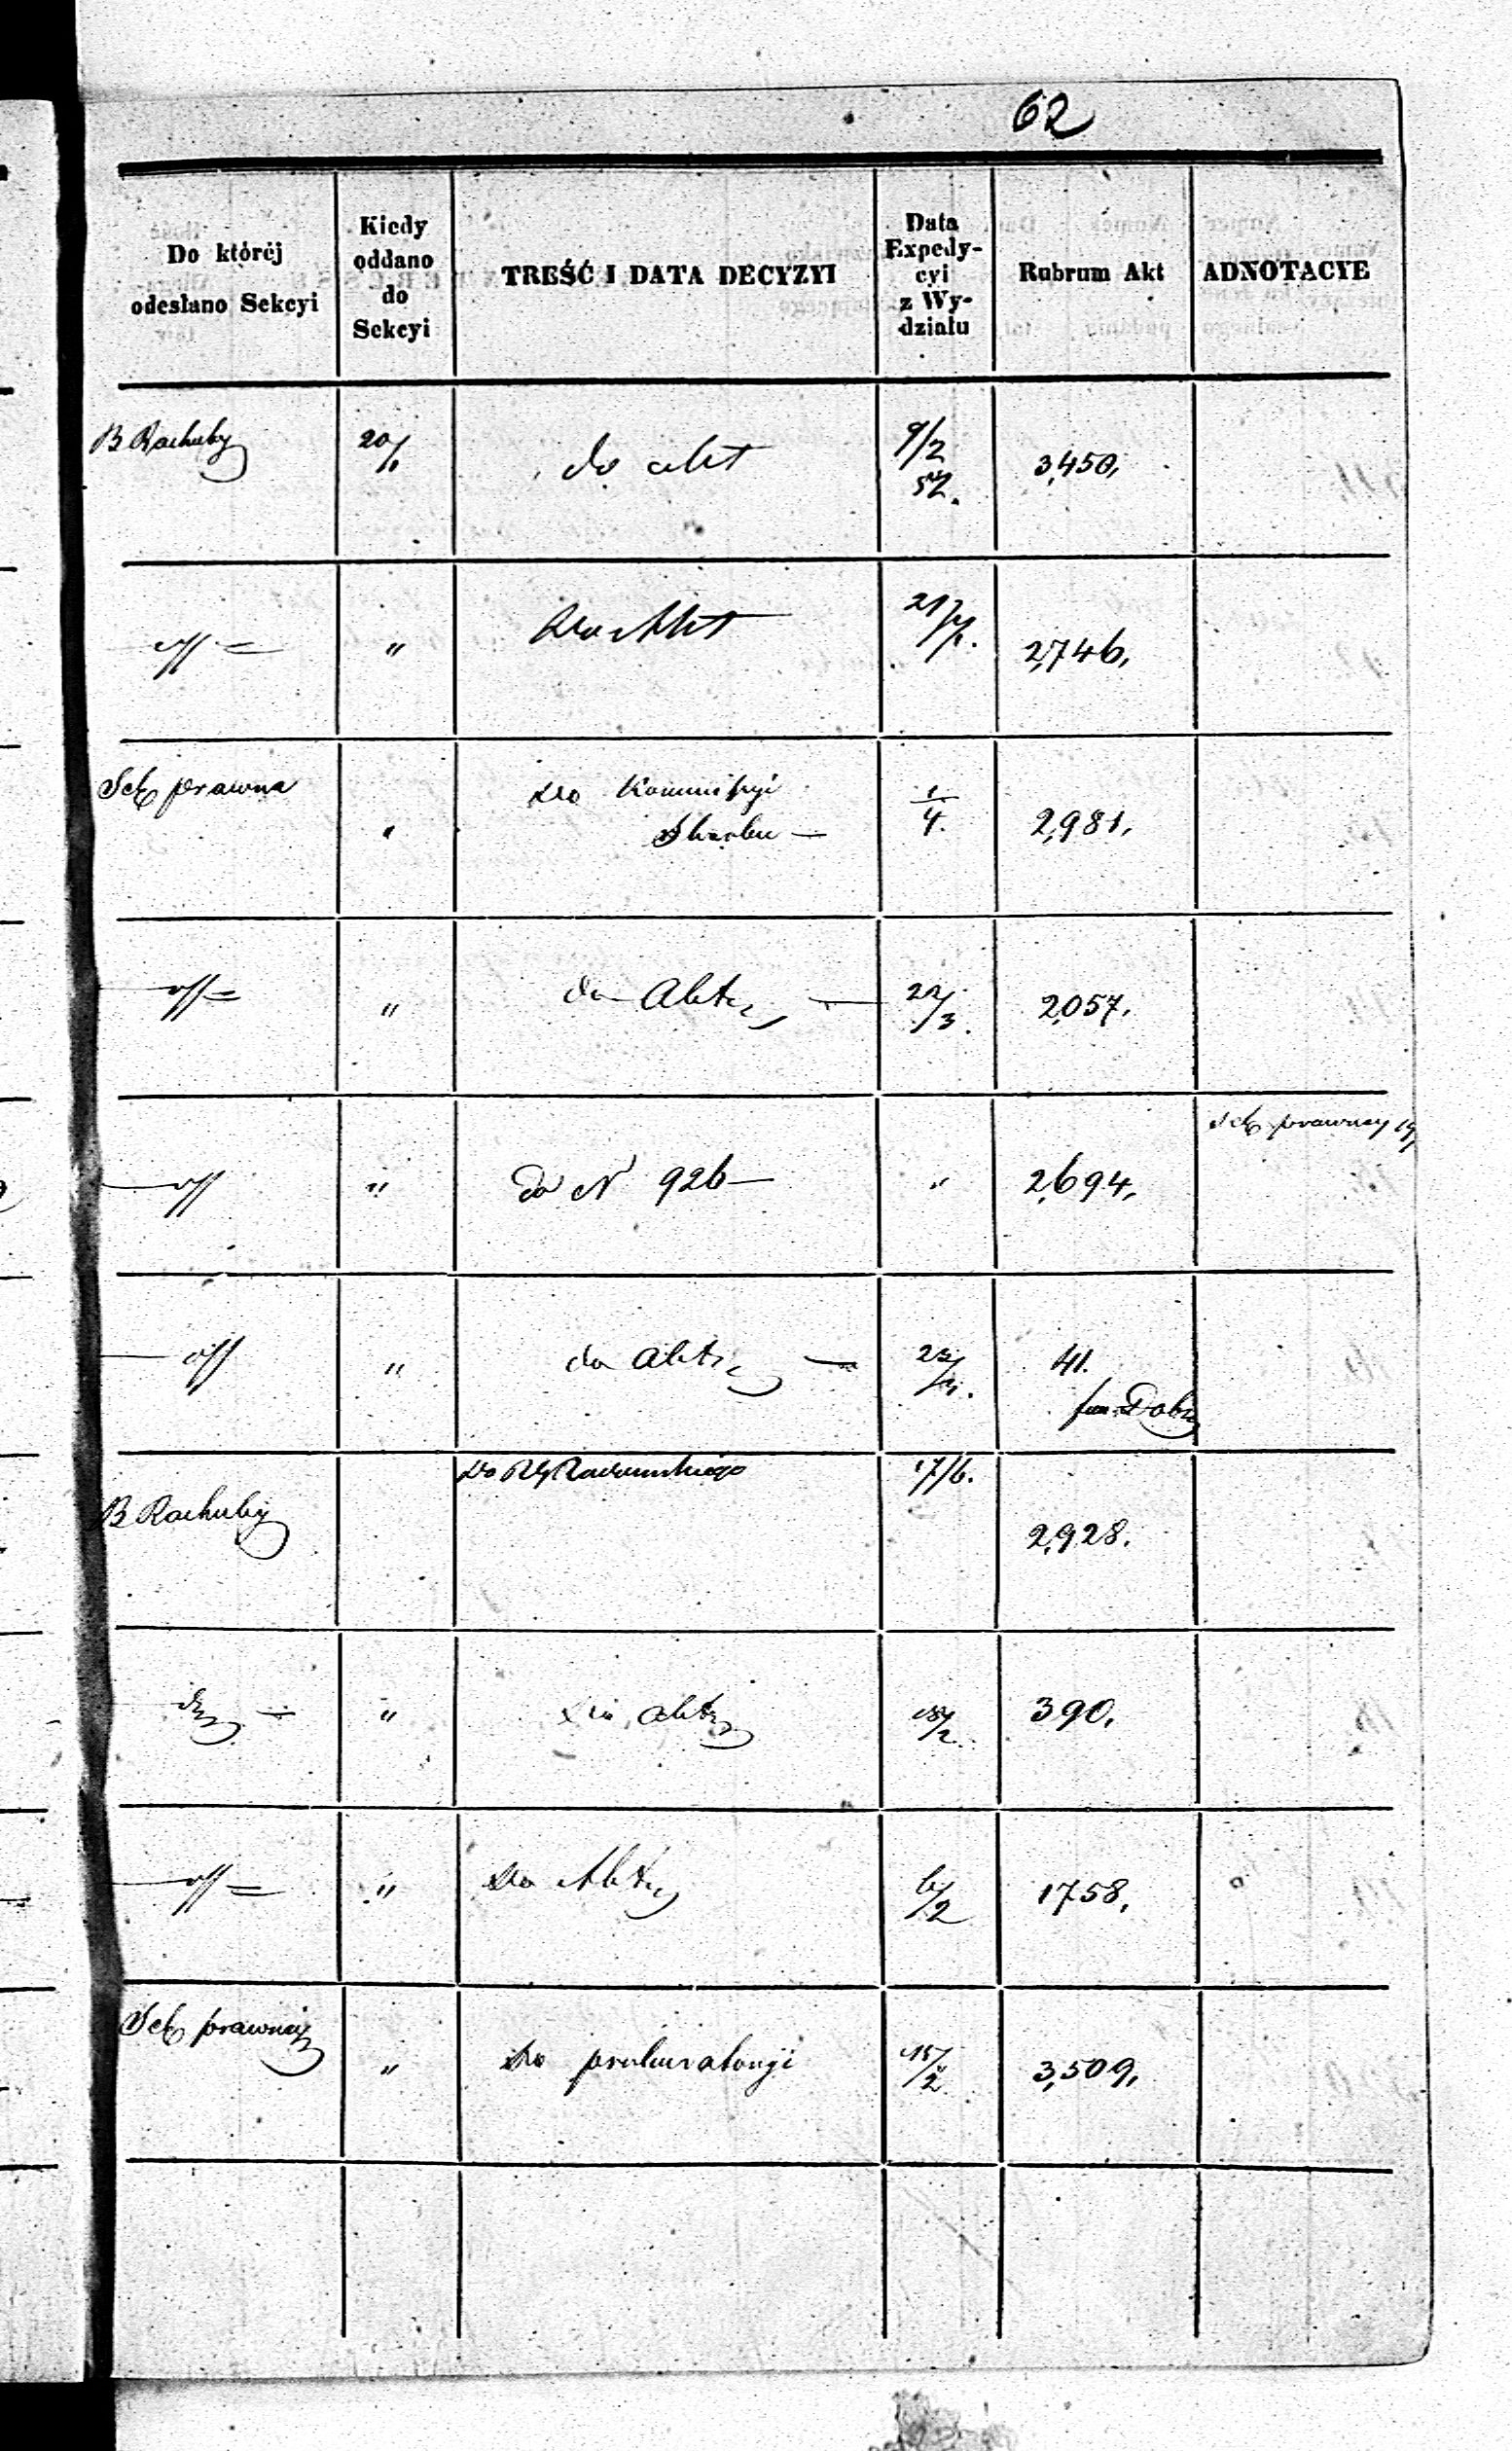 62
Do któréj
odesłano Sekcyi
Kiedy
oddano
do
Sekcyi
TREŚĆ I DATA DECYZYI
Data
Expedy-
cyi
z Wy-
działu
Rubrum Akt
ADNOTACYE
B Rachuby 20/1 do akt 9/2 3,450,
52.
" Do Akt 2,746,
Sek prawna " Do Kommissyi 1/4. 2,981,
Skarbu —
" do Akt 22/3. 2,057.
Sek prawney
" do N 926 — " 2,694,
" do Akt 41.
Do Radomskiego 17/6.
B Rachuby 2,928.
" Akt 18/2. 390,
" Do Akt 6/2 1758,
Sek prawney " Do prokuratoryi 15/2 3,509,